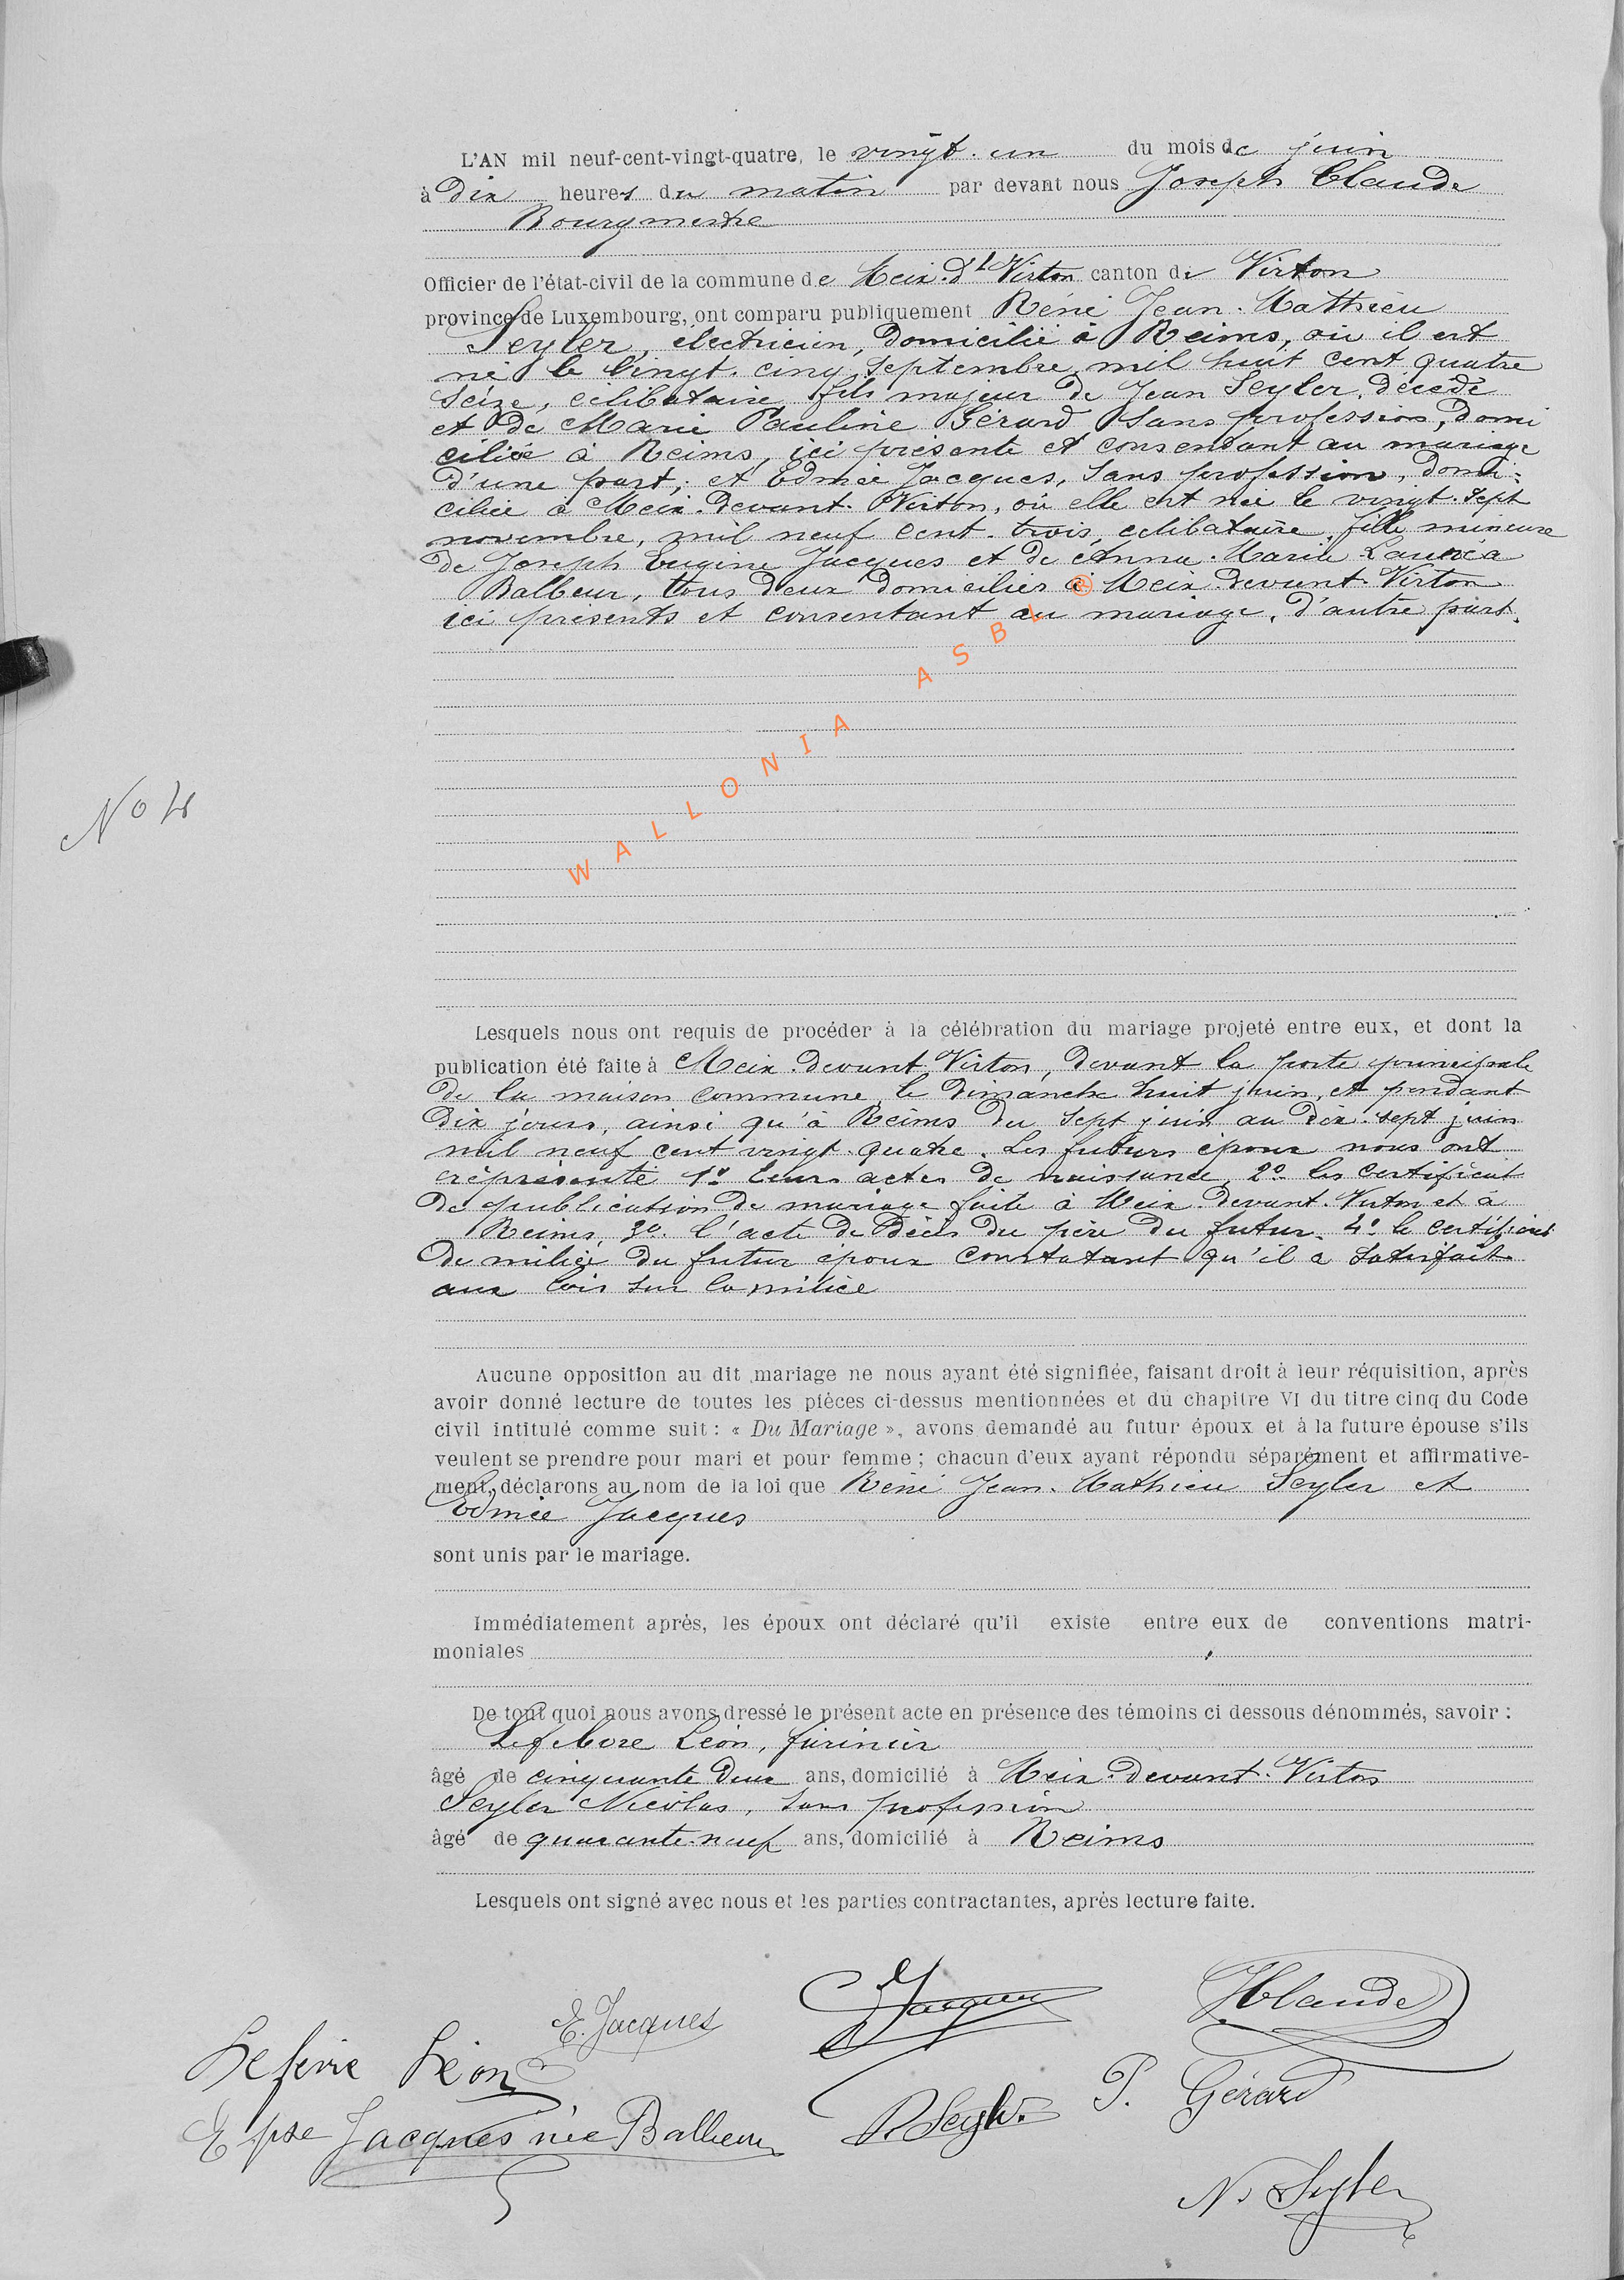 L'AN mil neuf-cent-vingt-quatre, le vingt-un du mois de juin
à dix heures du matin par devant nous Joseph Claude
Bourgmestre
Officier de l'état-civil de la commune de Meix-dt Virton canton de Virton
province de Luxembourg, ont comparu publiquement Réné Jean-Mathieu
Seyler, électricien, domicilié à Reims, où il est
né le vingt-cinq septembre mil huit cent quatre
seize, célibataire fils majeur de Jean Seyler, décédé
et de Marie Pauline Gérard sans profession, domi
ciliée à Reims, ici présente et consentant au mariage
d'une part; et Edmée Jacques, sans profession, domi-
ciliée à Meix-devant-Virton, où elle est née le vingt-sept
novembre, mil neuf cent-trois, célibataire, fille mineure
de Joseph Eugène Jacques et de Anna-Maria
Balbeur, tous deux domiciliés à Meix devant-Virton
ici présents et consentant au mariage, d'autre part.
WALLONIA ASBL ®
No 4
Lesquels nous ont requis de procéder à la célébration du mariage projeté entre eux, et dont la
publication été faite à Meix-devant Virton, devant la porte principale
de la maison commune, le dimanche huit juin, et pendant
dix jours, ainsi qu'à Reims du sept juin au dix-sept juin
mil neuf cent vingt-quatre. Les futurs époux nous ont
représenté 1° leurs actes de naissance, 2° les certificat
de publication de mariage faite à Meix-devant-Virton et à
Reims, 3° l'acte de décès du père du futur. 4° le certificat
de milice du futur époux constatant qu'il a satisfait
aux lois sur la milice
Aucune opposition au dit mariage ne nous ayant été signifiée, faisant droit à leur réquisition, après
avoir donné lecture de toutes les pièces ci-dessus mentionnées et du chapitre VI du titre cinq du Code
civil intitulé comme suit : « Du Mariage », avons demandé au futur époux et à la future épouse s'ils
veulent se prendre pour mari et pour femme ; chacun d'eux ayant répondu séparément et affirmative-
ment, déclarons au nom de la loi que Réné Jean-Mathieu Seyler et
Edmée Jacques
sont unis par le mariage.
Immédiatement après, les époux ont déclaré qu'il existe entre eux de conventions matri-
moniales
De tout quoi nous avons dressé le présent acte en présence des témoins ci dessous dénommés, savoir :
Lefebvre Léon, farinier
âgé de cinquante deux ans, domicilié à Meix-devant-Virton
Seyler Nicolas, sans profession
âgé de quarante-neuf ans, domicilié à Reims
Lesquels ont signé avec nous et les parties contractantes, après lecture faite.
E. Jacques Jacques JClaude
Lefevre Léon
R Seyler P. Gérard
Epse Jacques née Balbeur
N. Seyler